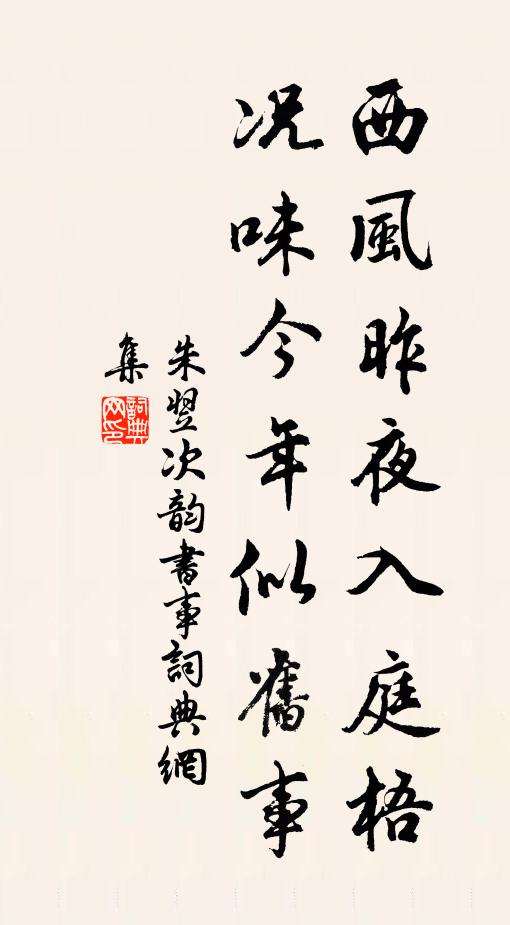 西風昨夜入庭梧
况味今年似舊事
朱翌次韵書事詞典網
集
詞典
网印